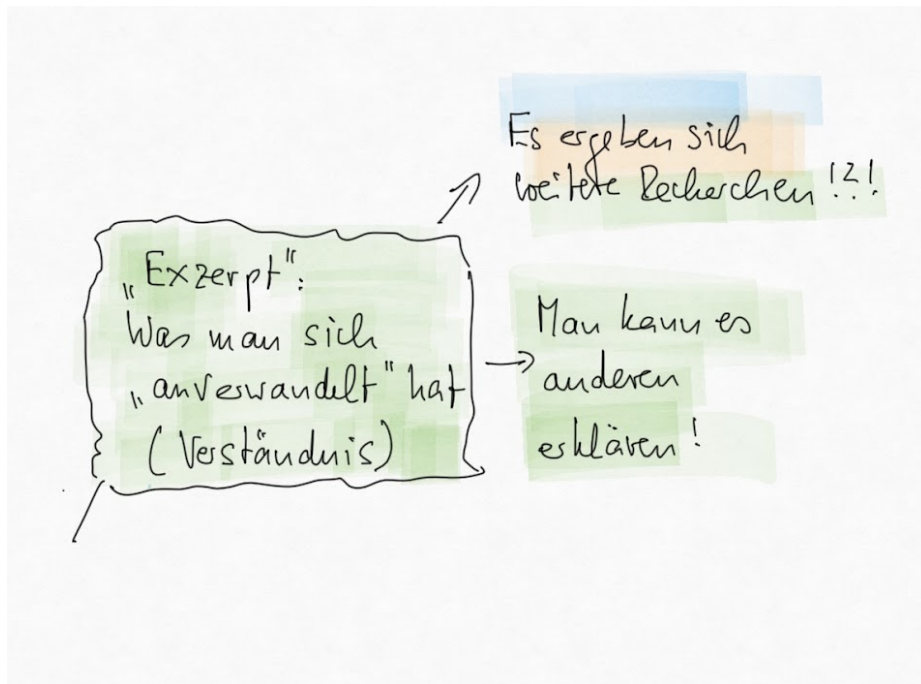 „Exzerpt":
Was man sich
„anverwandelt" hat
(Verständnis)
Es ergeben sich
weitere Recherchen!?!
Man kann es
anderen
erklären!